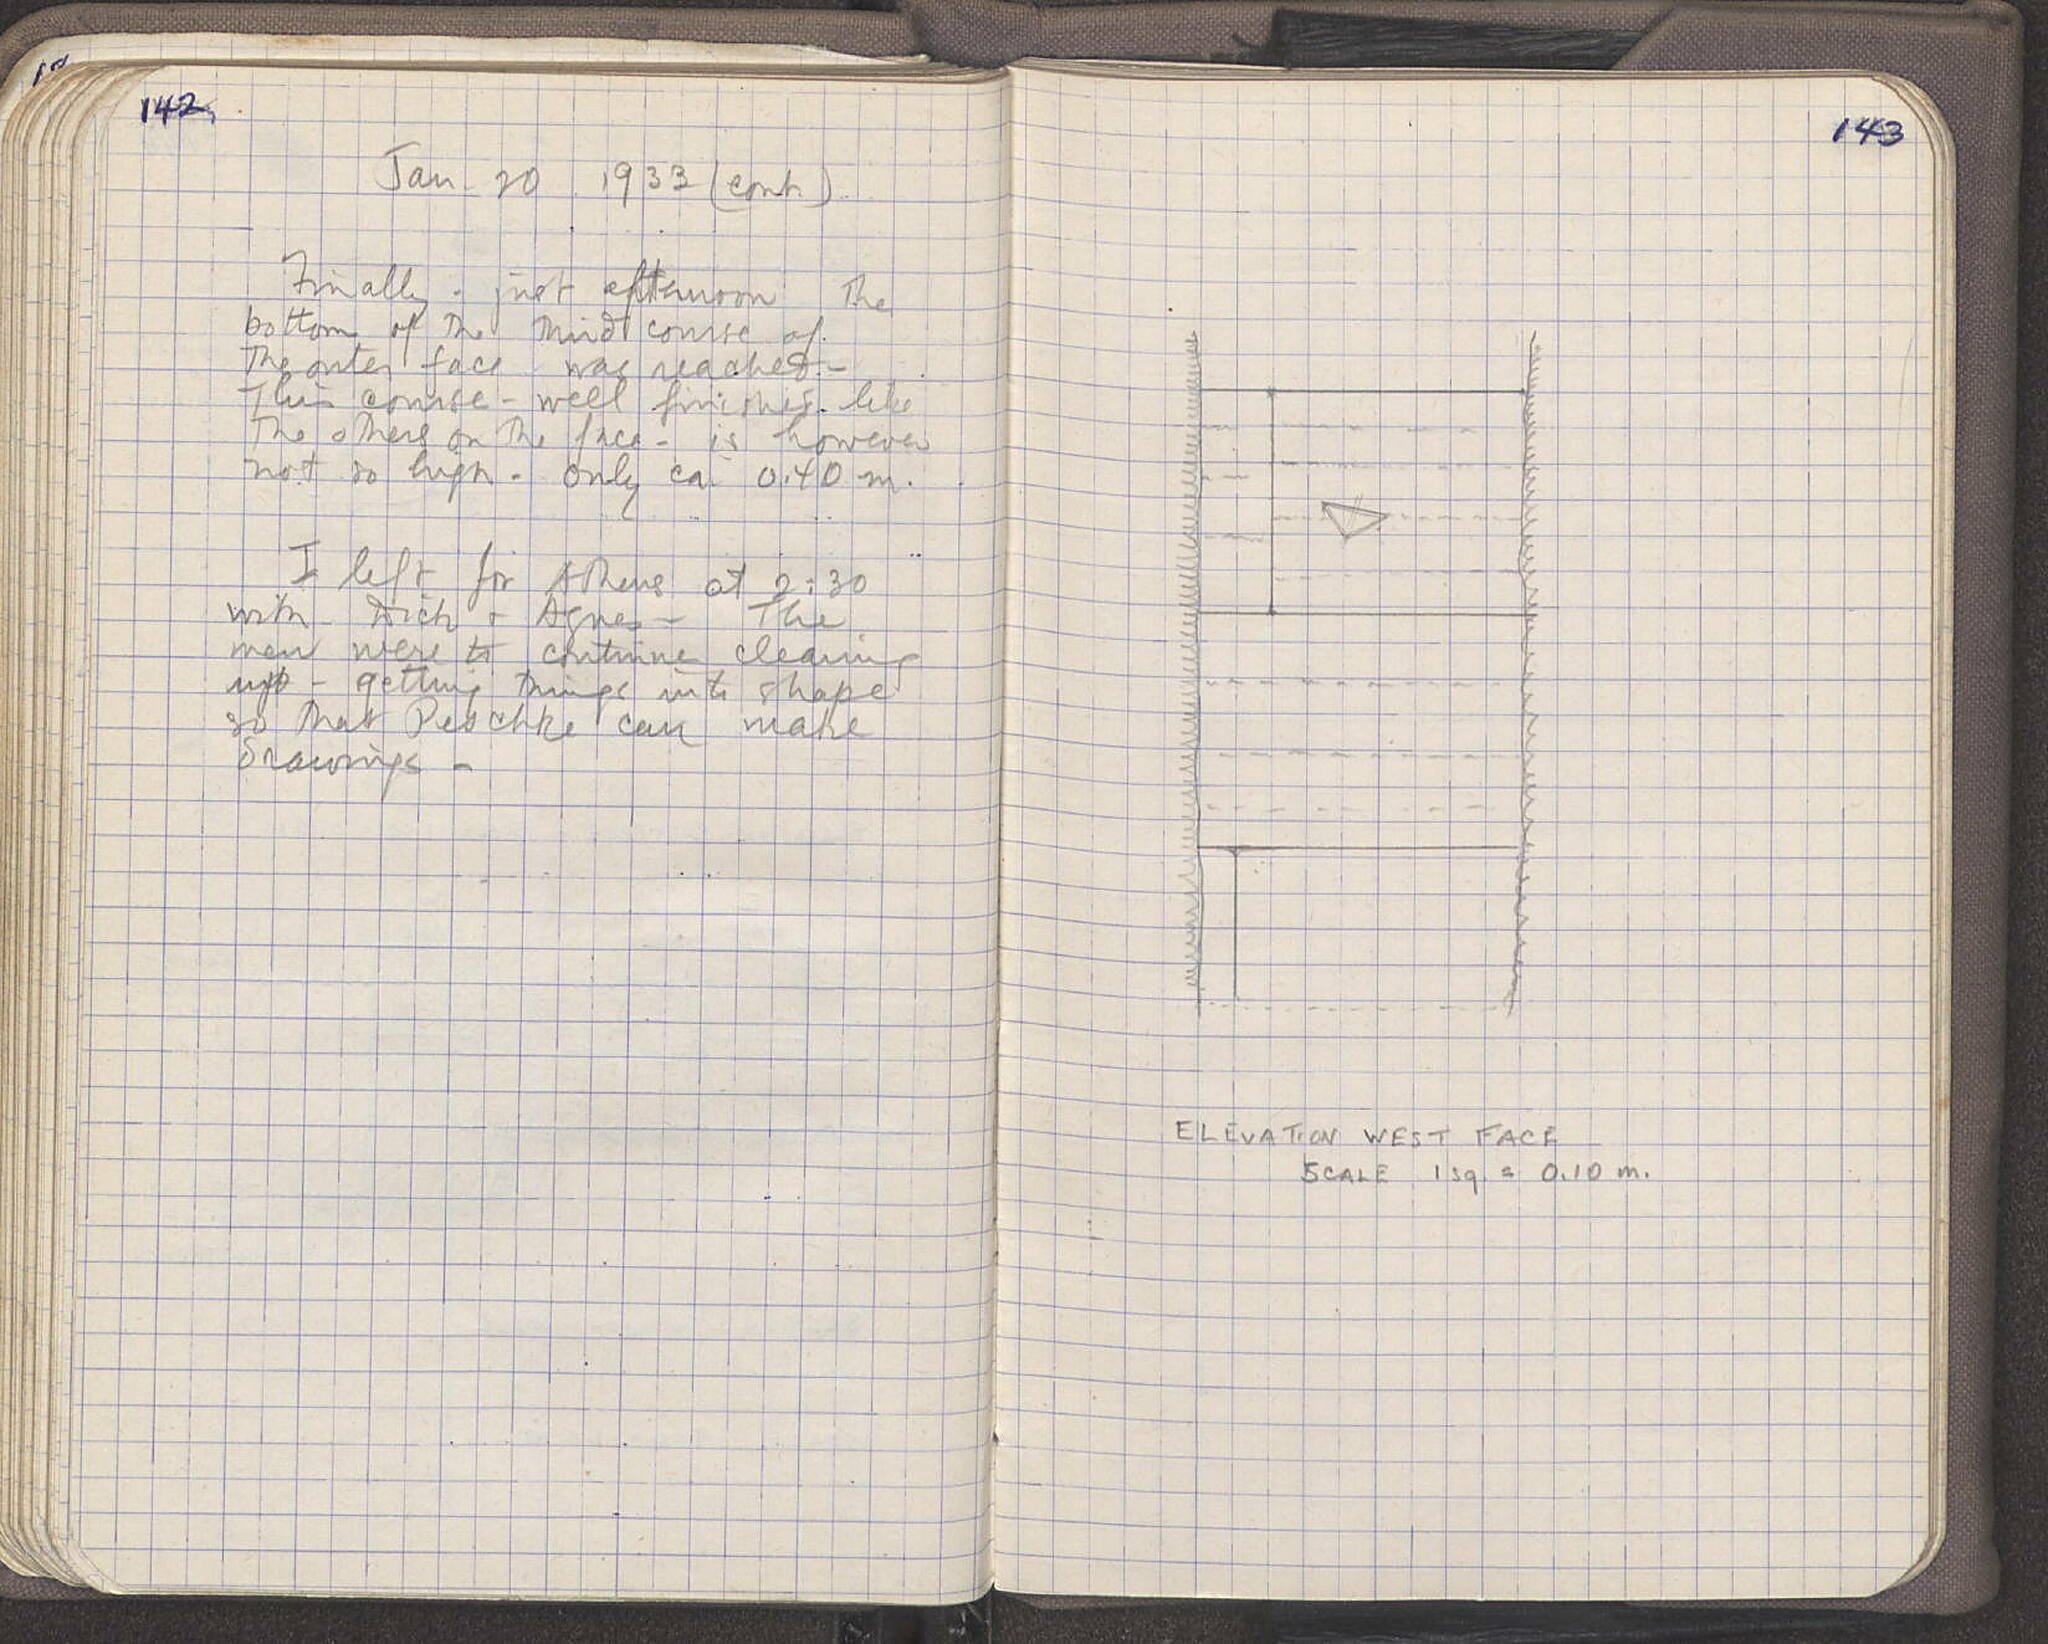 142
Jan 20 1933 (cont.)
Finally - just afternoon the
bottom of the third course of
the outer face was reached. -
This course - well finished like
the others on the face - is however
not so high - only ca. 0.40 m.
I left for Athens at 2:30
with Dick + Agnes - The
men were to continue cleaning
up - getting things into shape
so that Peschke can make
drawings -
143
ELEVATION WEST FACE
SCALE 1 sq. = 0.10 m.